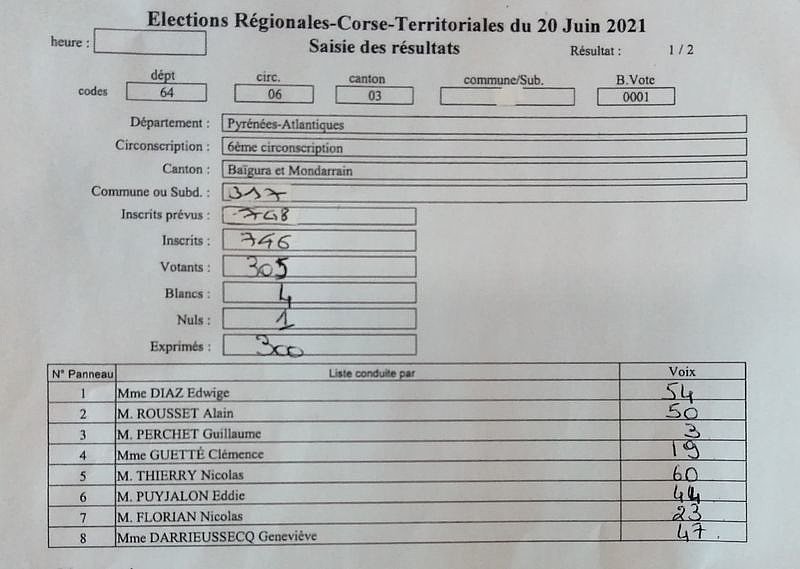 Elections Régionales-Corse-Territoriales du 20 Juin 2021
heure :
Saisie des résultats
Résultat : 1 / 2
dépt circ. canton commune/Sub. B.Vote
codes 64 06 03 0001
Département : Pyrénées-Atlantiques
Circonscription : 6ème circonscription
Canton : Baïgura et Mondarrain
Commune ou Subd. : 317
Inscrits prévus : 748
Inscrits : 746
Votants : 305
Blancs : 4
Nuls : 1
Exprimés : 300
N° Panneau Liste conduite par Voix
1 Mme DIAZ Edwige 54
2 M. ROUSSET Alain 50
3 M. PERCHET Guillaume 3
4 Mme GUETTÉ Clémence 19
5 M. THIERRY Nicolas 60
6 M. PUYJALON Eddie 44
7 M. FLORIAN Nicolas 23
8 Mme DARRIEUSSECQ Geneviève 47